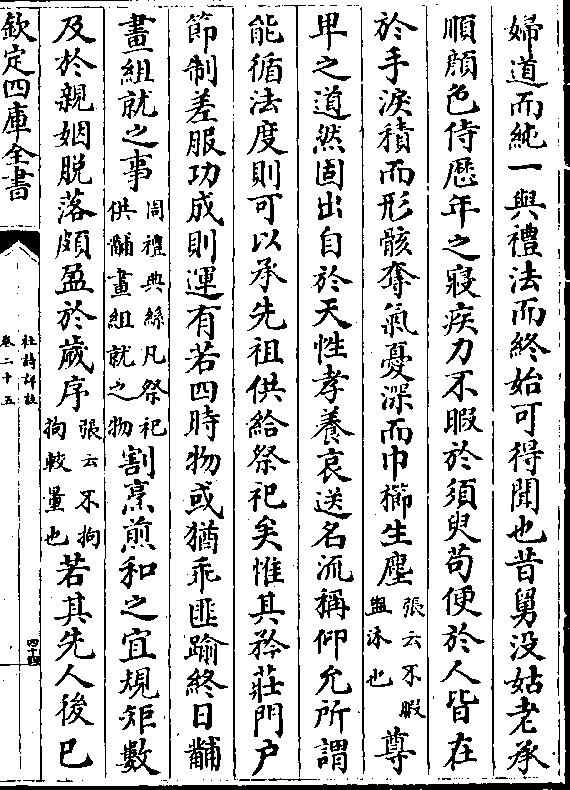 婦道而純一與禮法而終始可得聞也昔舅没姑老承
順顔色侍歴年之寢疾力不暇於須臾苟便於人皆在
於手淚積而形骸奪氣憂深而巾櫛生塵張云不暇盥沐也尊
卑之道然固出自於天性孝養哀送名流稱仰允所謂
能循法度則可以承先祖供給祭祀矣惟其矜莊門户
節制差服功成則運有若四時物或猶乖匪踰終日黼
畫組就之事周禮典絲凡祭祀供黼畫組就之物割烹煎和之宜規矩數
及於親姻脱落頗盈於歲序張云不拘拘較量也若其先人後已
欽定四庫全書
杜詩詳註
卷二十五
四十四